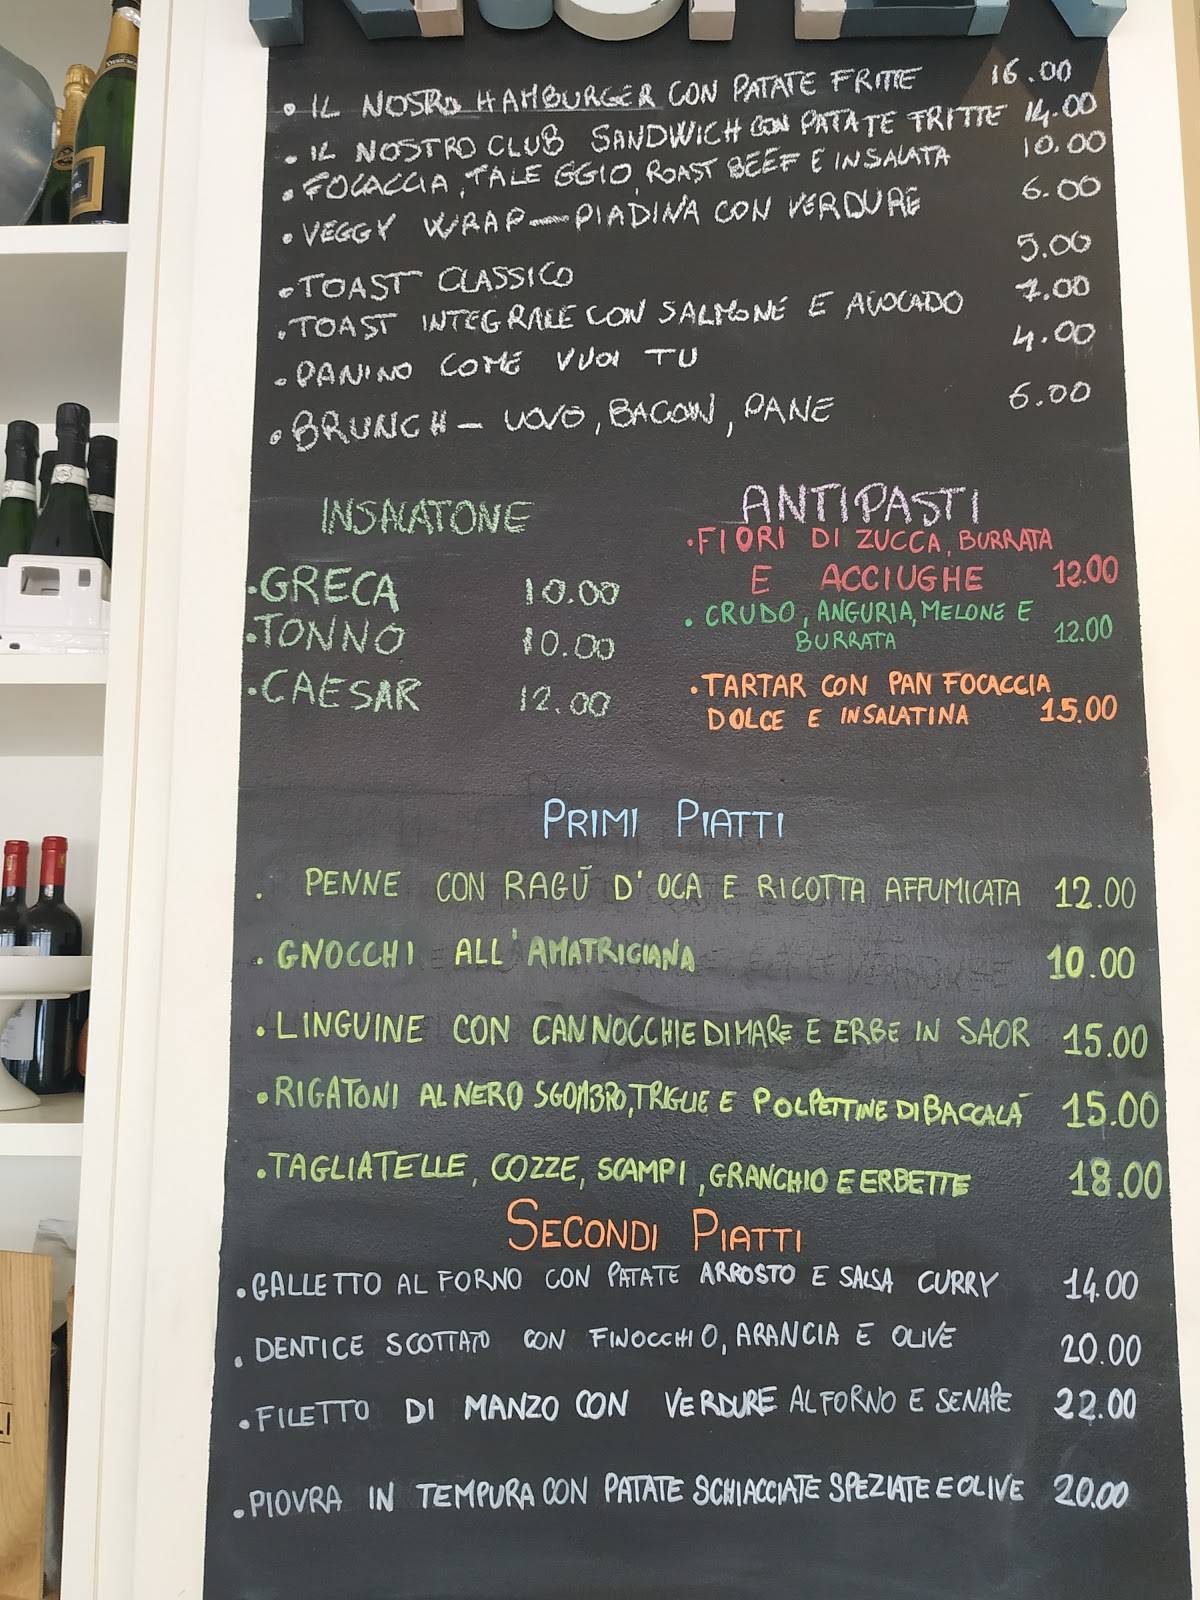 • IL NOSTRO HAMBURGER CON PATATE FRITTE 16.00
• IL NOSTRO CLUB SANDWICH CON PATATE FRITTE 14.00
• FOCACCIA, TALEGGIO, ROAST BEEF E INSALATA 10.00
• VEGGY WRAP—PIADINA CON VERDURE 6.00
• TOAST CLASSICO 5.00
• TOAST INTEGRALE CON SALMONE E AVOCADO 7.00
• PANINO COME VUOI TU 4.00
• BRUNCH – UOVO, BACON, PANE 6.00
INSALATONE
• GRECA 10.00
• TONNO 10.00
• CAESAR 12.00
ANTIPASTI
• FIORI DI ZUCCA, BURRATA
E ACCIUGHE 12.00
• CRUDO, ANGURIA, MELONE E
BURRATA 12.00
• TARTAR CON PAN FOCACCIA
DOLCE E INSALATINA 15.00
PRIMI PIATTI
• PENNE CON RAGÙ D'OCA E RICOTTA AFFUMICATA 12.00
• GNOCCHI ALL'AMATRICIANA 10.00
• LINGUINE CON CANNOCCHIE DI MARE E ERBE IN SAOR 15.00
• RIGATONI AL NERO SGOMBRO, TRIGLIE E POLPETTINE DI BACCALÀ 15.00
• TAGLIATELLE, COZZE, SCAMPI, GRANCHIO E ERBETTE 18.00
SECONDI PIATTI
• GALLETTO AL FORNO CON PATATE ARROSTO E SALSA CURRY 14.00
• DENTICE SCOTTATO CON FINOCCHIO, ARANCIA E OLIVE 20.00
• FILETTO DI MANZO CON VERDURE AL FORNO E SENAPE 22.00
• PIOVRA IN TEMPURA CON PATATE SCHIACCIATE SPEZIATE E OLIVE 20.00